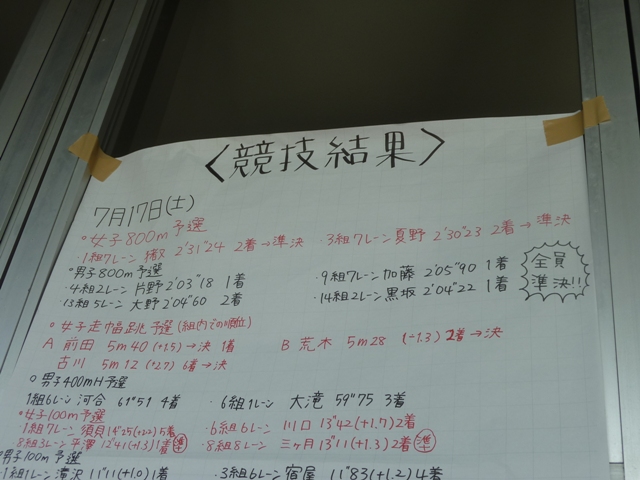 〈競技結果〉
7月17日(土)
○女子800m予選
・1組7レーン 2'31"24 2着→準決 ・3組7レーン夏野 2'30"23 2着→準決
○男子800m予選
・4組2レーン 片野 2'03"18 1着 ・9組7レーン加藤 2'05"90 1着
・13組5レーン 大野 2'04"60 2着 ・14組2レーン黒坂 2'04"22 1着
全員
準決!!
○女子走幅跳予選(組内での順位)
A 前田 5m40 (+1.5)→決 1着 B 荒木 5m28 (-1.3) 2着→決
古川 5m12 (+2.7) 6着→決
○男子400mH予選
1組6レーン 河合 61"51 4着 ・6組1レーン 大滝 59"75 3着
○女子100m予選
・1組7レーン 須貝 14"25(+2.2)5着 ・6組6レーン 川口 13"42(+1.7)2着
・8組3レーン 平澤 12"41(+1.3)1着 準 ・8組8レーン 三ヶ月 13"11(+1.3)2着 準
男子100m予選
・1組1レーン 滝沢 11"11(+1.0)1着 ・3組6レーン 宿屋 11"83(+1.2)4着